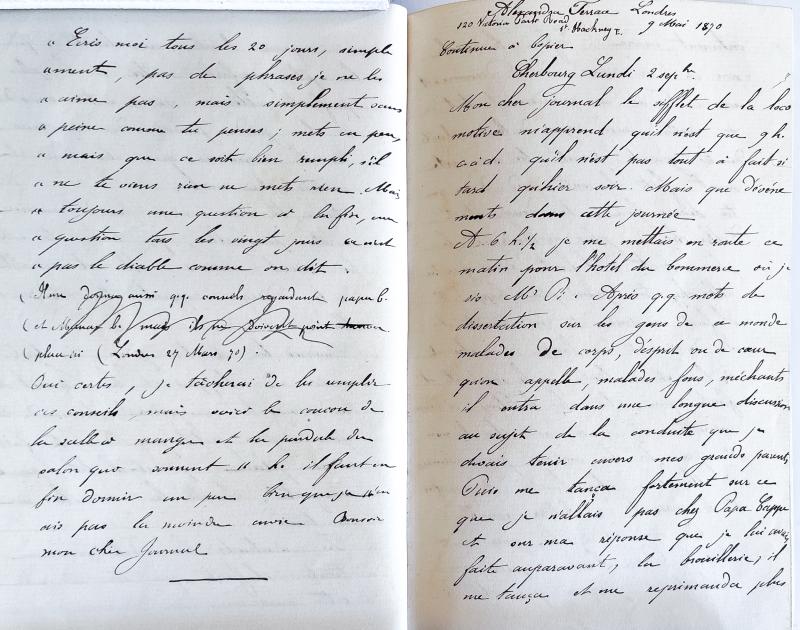 « Ecris moi tous les 20 jours, simple
« ament, pas de phrases je ne les
« aime pas, mais simplement sans
« peine comme tu penses ; mets un peu,
« mais que ce soit bien rempli, s'il
« ne te viens rien ne mets rien. Mais
« toujours une question à la fin, une
« question tous les vingt jours ce n'est
« pas le diable comme on dit.
( donna aussi q.q. conseils regardant papa C.
( et Maman C. mais ils ne doivent point
( place ici (Londres 27 Mars 70).
Oui certes, je tâcherai de les remplir
ces conseils, mais voici le coucou de
la salle à manger et la pendule du
salon qui sonnent 11 h. il faut en
fin dormir un peu bien que je n'en
aie pas la moindre envie Bonsoir
mon cher Journal

Alexandra Terrace Londres
120 Victoria Park Road Hackney 9 Mai 1870
Continue à copier
Cherbourg Lundi 2 sept.
Mon cher journal le sifflet de la loco
motive m'apprend qu'il n'est que 9 h.
c.à.d. qu'il n'est pas tout à fait si
tard qu'hier soir. Mais que d'événe
ments dans cette journée
A 6 h. 1/2 je me mettais en route ce
matin pour l'hôtel du Commerce où je
vis Mr Après q.q. mots de
dissertation sur les gens de ce monde
malades de corps, d'esprit ou de cœur
qu'on appelle, malades fous, méchants
il entra dans une longue discussion
au sujet de la conduite que je
devais tenir envers mes grands parents
Puis me tança fortement sur ce
que je n'allais pas chez Papa
et sur ma réponse que je lui avais
faite auparavant, la brouillerie, il
me tança et me réprimanda plus